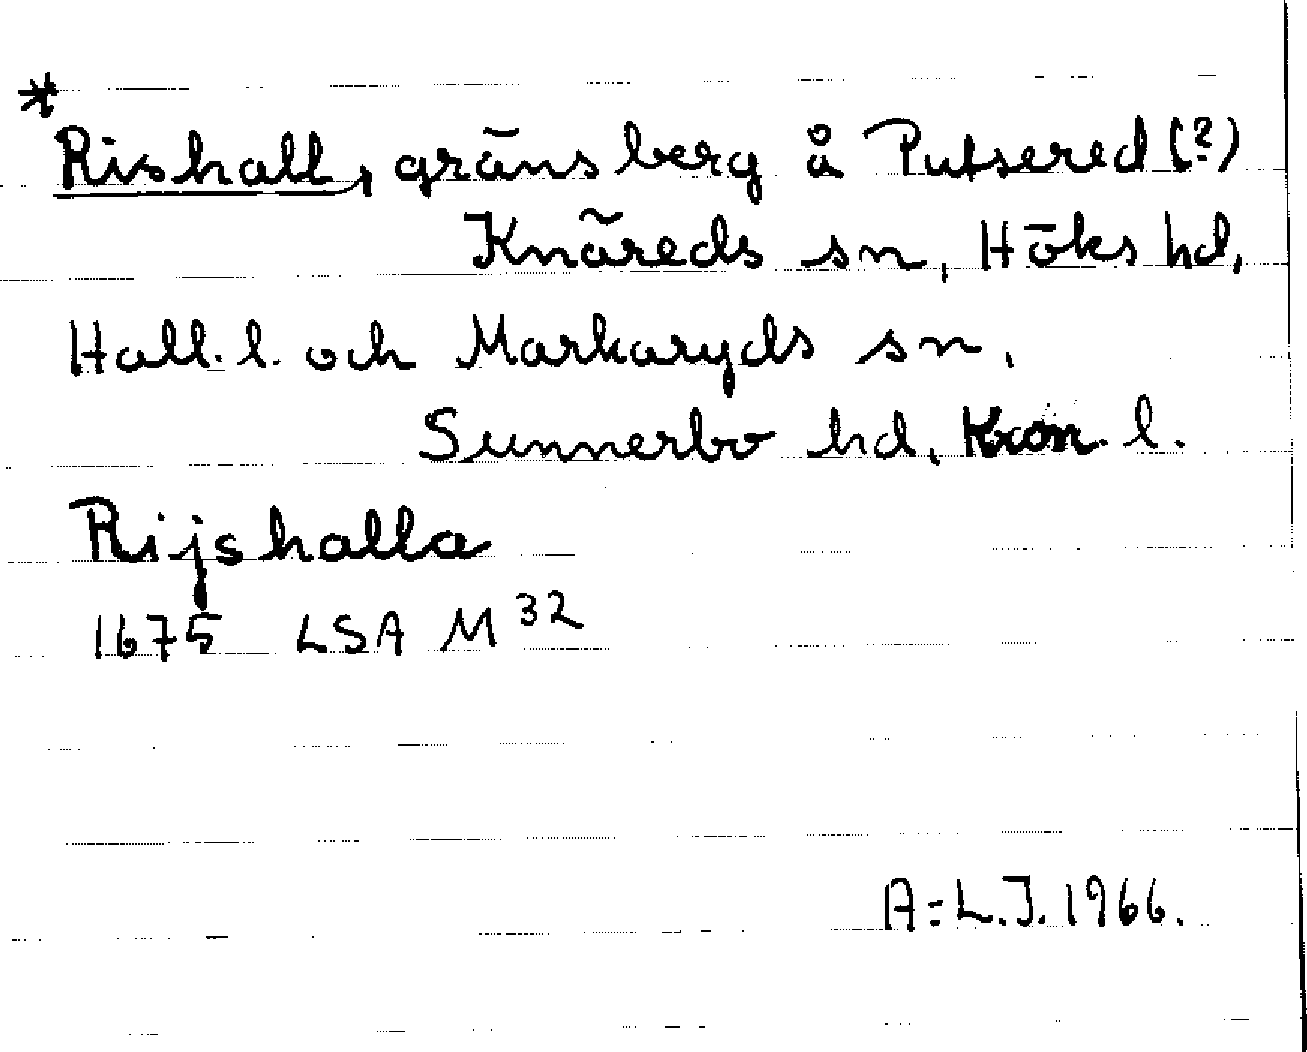 *
Rishall, gränsberg å Putsered (?)
Knäreds sn, Höks hd,
Hall. l. och Markaryds sn,
Sunnerbo hd, Kron. l.
Rijshalla
1675 LSA M 32
A:L.J. 1966.